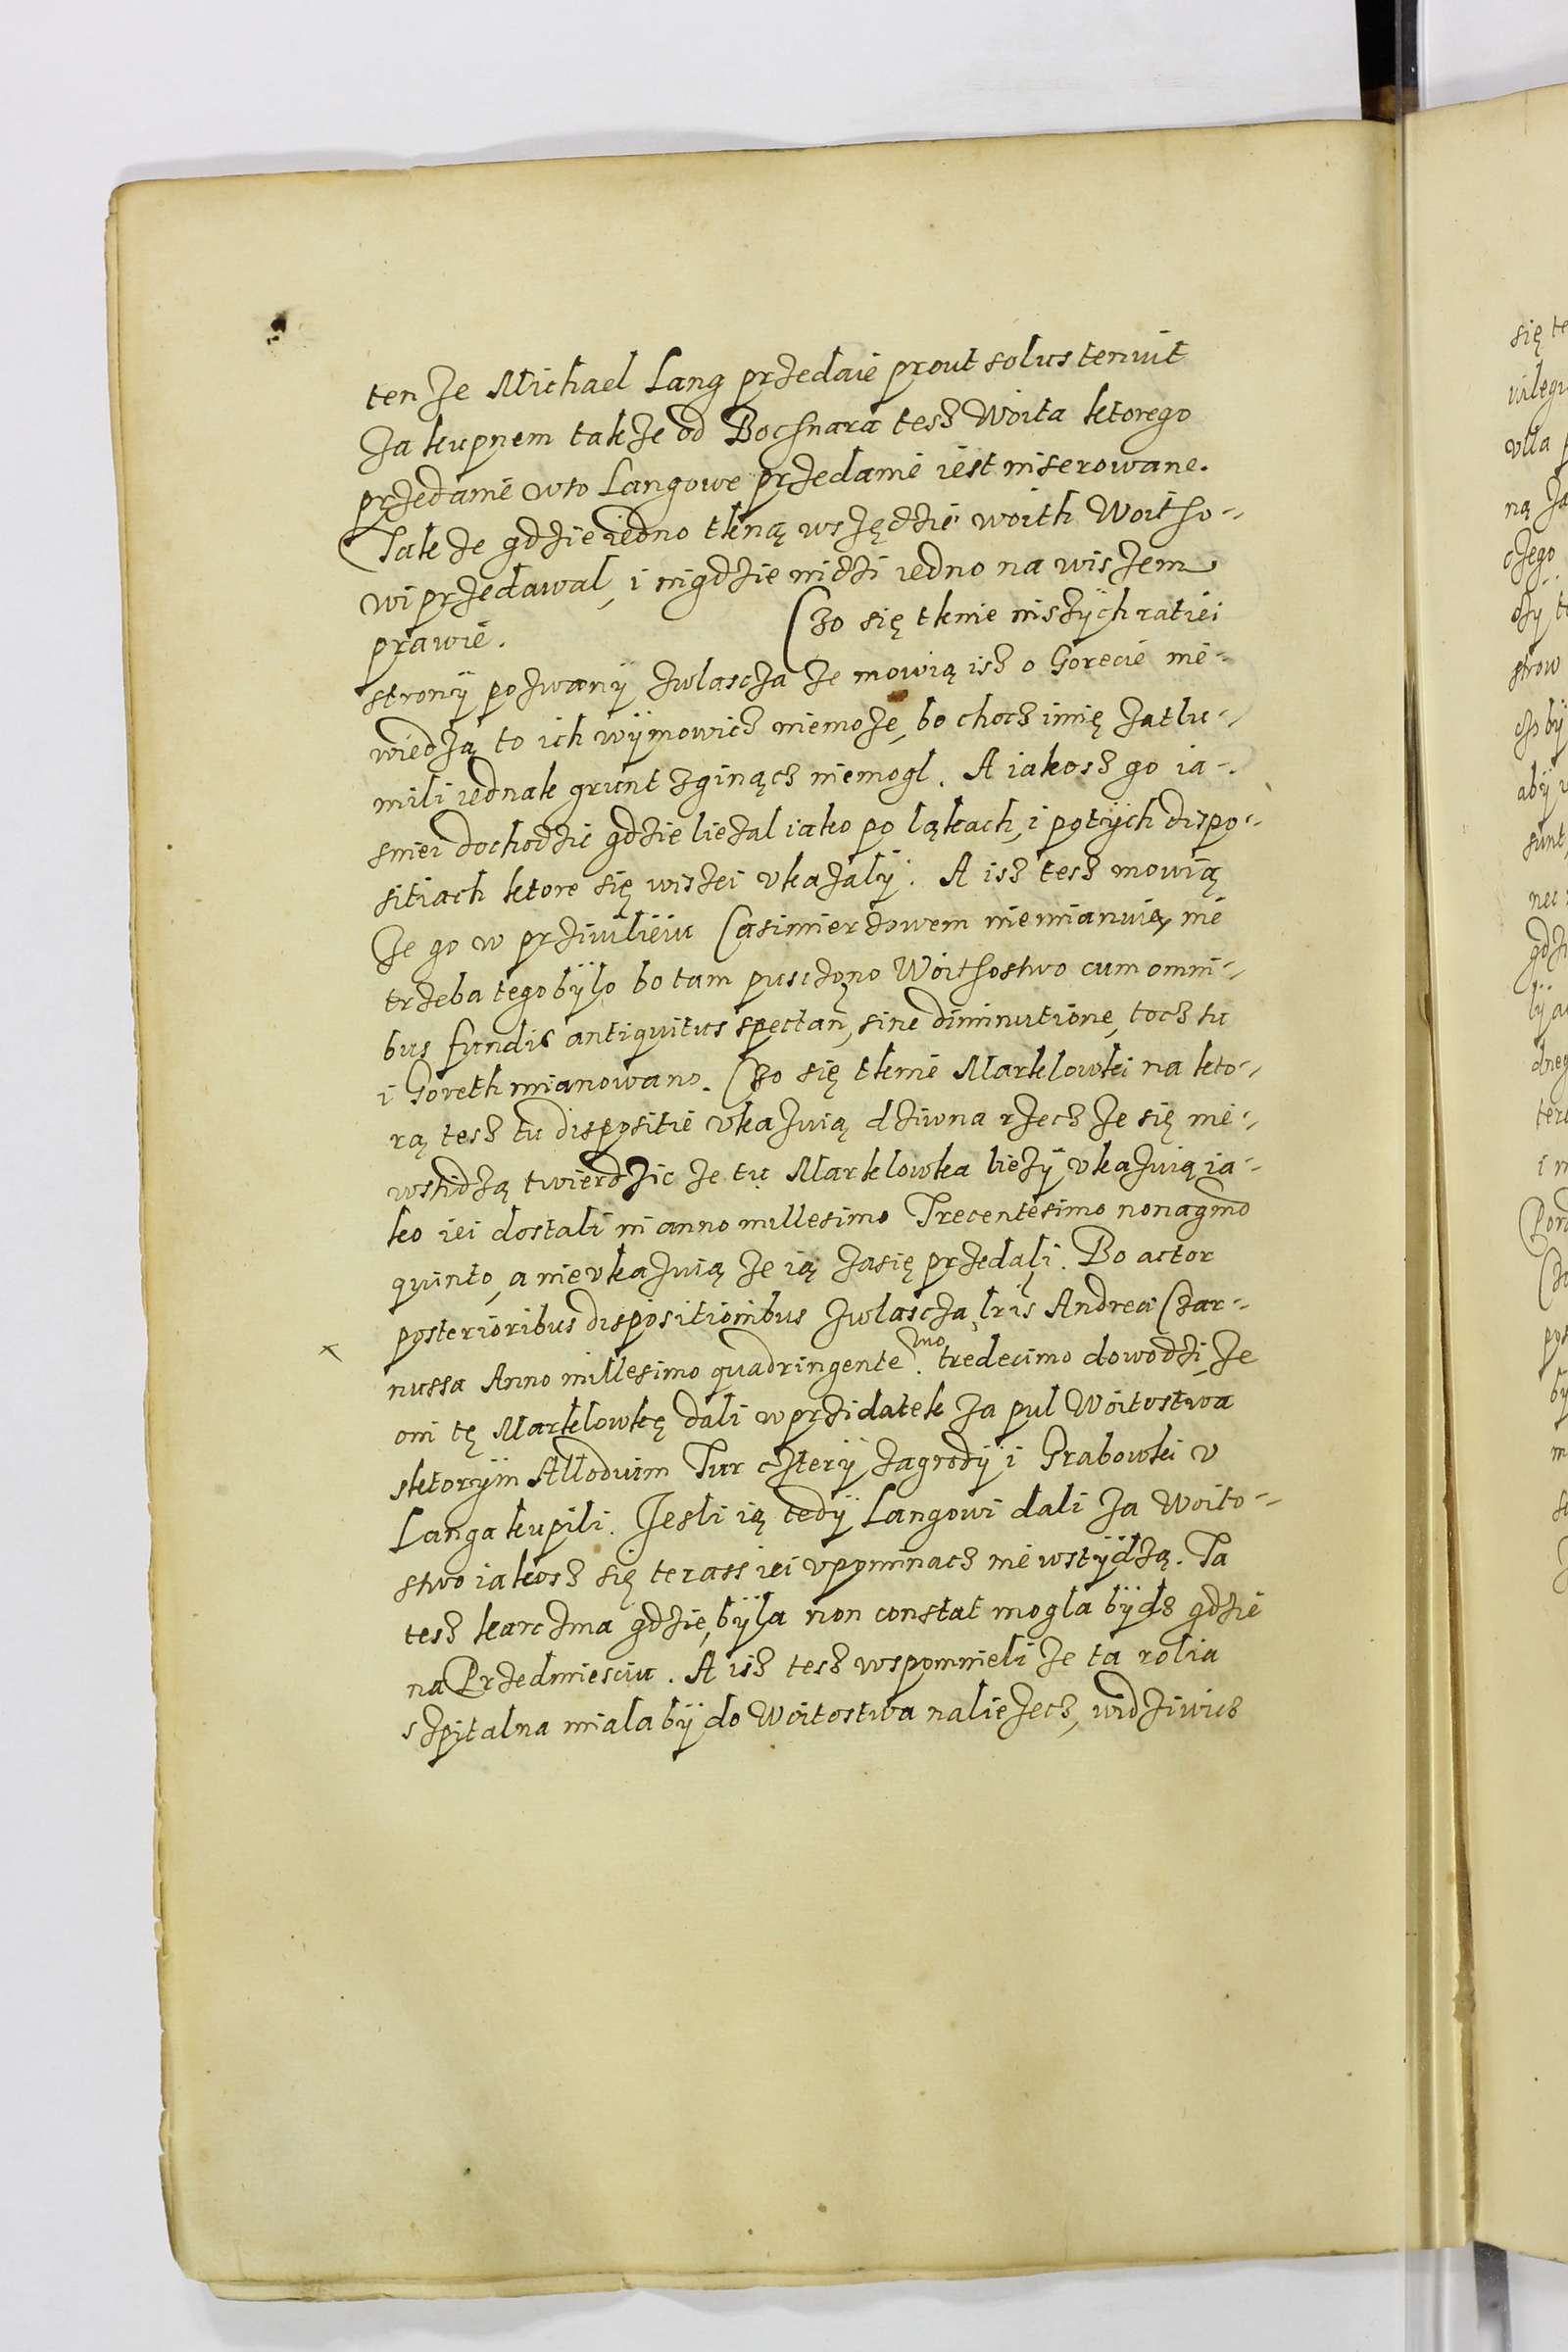 tenże Michael Lang przedaie prout solus tenuit
za kupnem także od Bochnara tesz Woita ktorego
przedanie wto Langowe przedanie iest inserowane.
Takze gdzie iedno tkną wszędzie woith Woitho-
wi przedawal, i nigdzie nidzi iedno na wiszem
prawie. Czo się tknie niszÿch ratiei
stronÿ pozwanÿ zwlascza ze mowią isz o Gorecie nie-
wiedzą to ich wÿmowicz niemoże, bo chocz imię zatlu-
mili iednak grunt zginącz niemogl. A iakosz go ia-
sniei dochodzic gdzie liezal iako po ląkach, i potÿch dispo-
sitiach ktore się wiszei ukazalÿ. A isz tesz mowią
ze go w prziuilieiu Casimierzowem niemianuią nie
trzeba tego bÿlo bo tam pusczono Woithostwo cum omni-
bus fundis antiquitus spectan, sine diminutione, tocz tu
i Goreth mianowano. Czo się tknie Marklowki na kto-
rą tesz tu dispositie vkazuią dziwna rzecz ze się nie-
wstidzą twierdzic ze tu Marklowka lieżÿ vkazuią ia-
ko iei dostali in anno millesimo Trecentesimo nonagmo
quinto, a nievkazuią ze ią zasię przedali. Bo actor
posterioribus dispositionibus zwlascza lris Andreæ Czar-
nussa Anno millesimo quadringente mo. tredecimo dowodzi ze
oni tę Marklowkę dali w przidatek za pul Woitostwa
sktorÿm Allodium Tur czterÿ zagrodÿ i Grabowki v
Langa kupili. Jesli ią tedÿ Langowi dali za Woito-
stwo iakosz się terass iei vpominacz nie wstÿdzą. Ta
tesz karczma gdzie bÿla non constat mogla bÿdz gdzie
na Przedmiesciu. A isz tesz wspomnieli ze ta rolia
szpitalna miala bÿ do Woitostwa naliezecz, vidziwicz